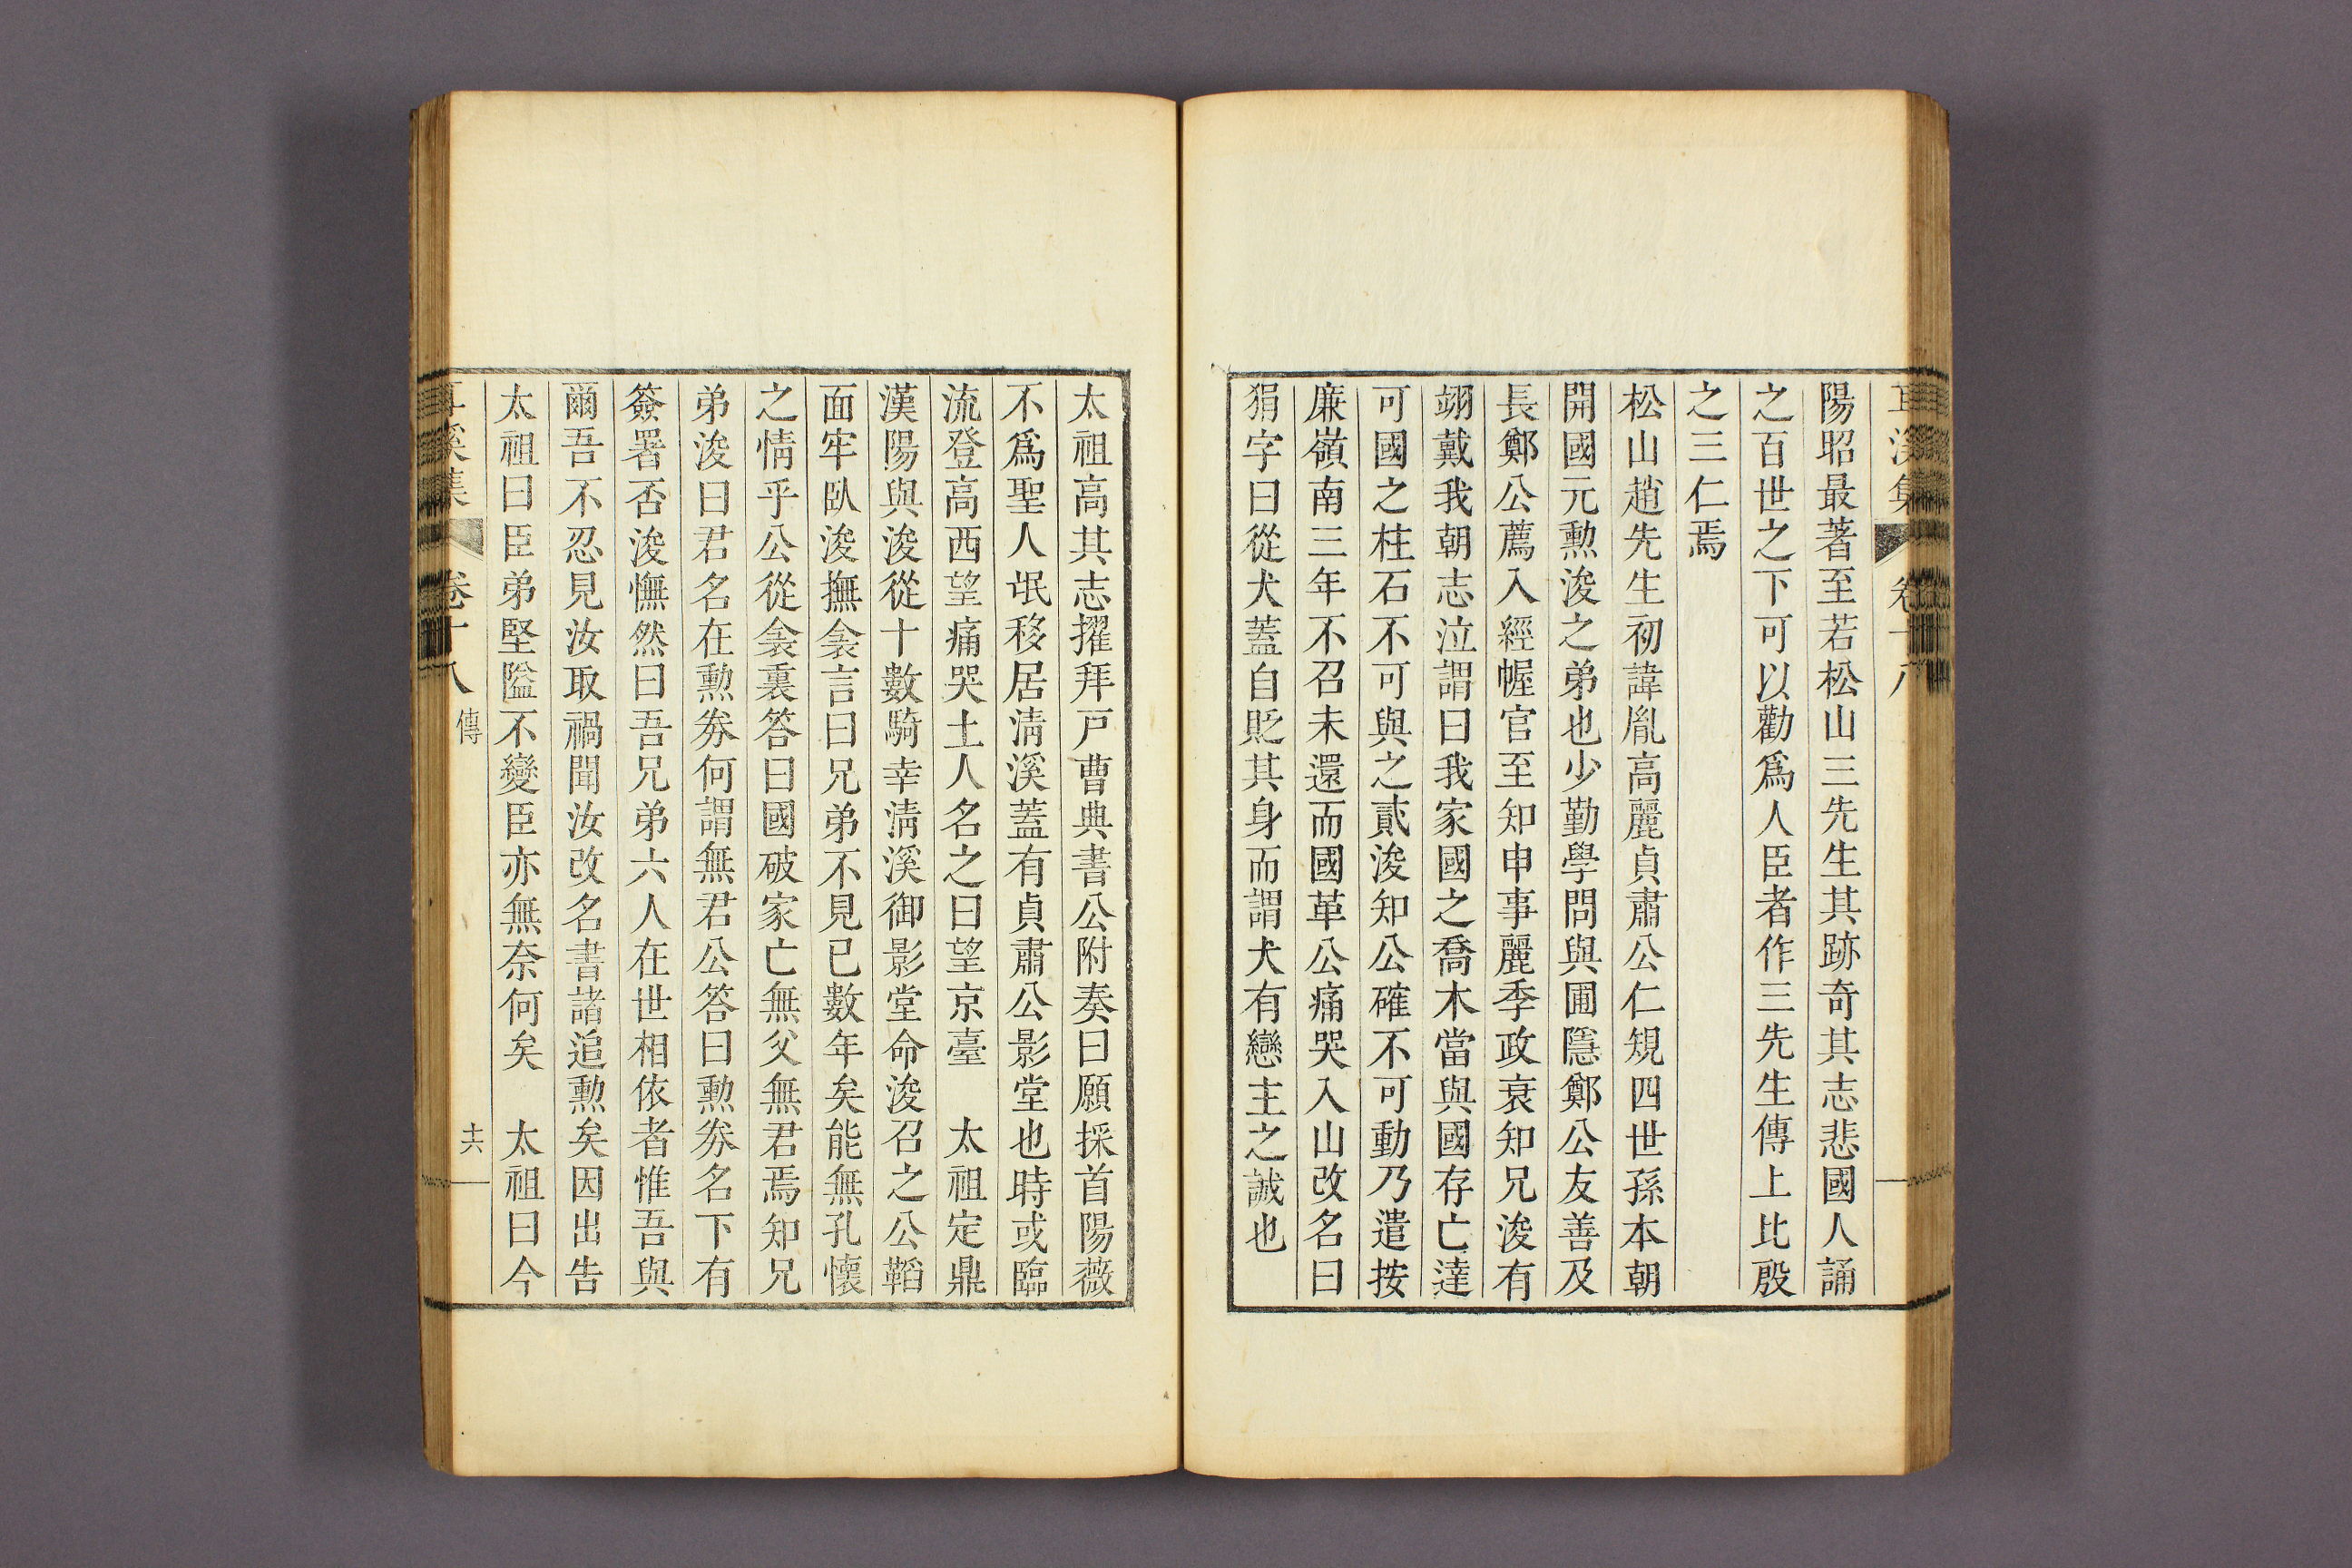 耳溪集 卷十八
陽昭最著至若松山三先生其跡奇其志悲國人誦
之百世之下可以勸爲人臣者作三先生傳上比殷
之三仁焉
松山趙先生初諱胤高麗貞肅公仁規四世孫本朝
開國元勲浚之弟也少勤學問與圃隱鄭公友善及
長鄭公薦入經幄官至知申事麗季政衰知兄浚有
翊戴我朝志泣謂曰我家國之喬木當與國存亡達
可國之柱石不可與之貳浚知公確不可動乃遣按
廉嶺南三年不召未還而國革公痛哭入山改名曰
狷字曰從犬蓋自貶其身而謂犬有戀主之誠也
太祖高其志擢拜戸曹典書公附奏曰願採首陽薇
不爲聖人氓移居淸溪蓋有貞肅公影堂也時或臨
流登高西望痛哭土人名之曰望京臺 太祖定鼎
漢陽與浚從十數騎幸淸溪御影堂命浚召之公韜
面牢臥浚撫衾言曰兄弟不見已數年矣能無孔懷
之情乎公從衾裏答曰國破家亡無父無君焉知兄
弟浚曰君名在勲券何謂無君公答曰勲券名下有
簽署否浚憮然曰吾兄弟六人在世相依者惟吾與
爾吾不忍見汝取禍聞汝改名書諸追勲矣因出告
太祖曰臣弟堅隘不變臣亦無奈何矣 太祖曰今
耳溪集 卷十八 傳 十六